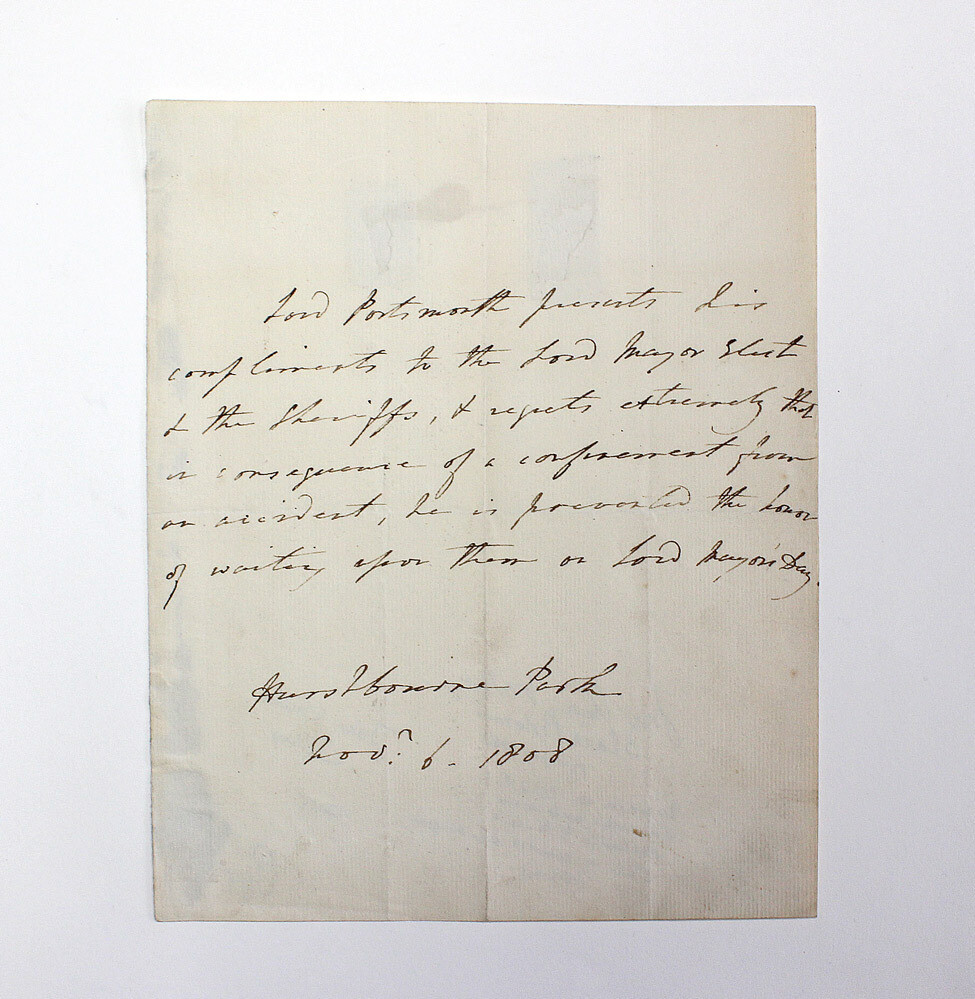 Lord Portsmouth presents his
compliments to the Lord Mayor Elect
& the Sheriffs, & regrets extremely that
in consequence of a confinement from
an accident, he is prevented the honor
of waiting upon them on Lord Mayor's Day.
Hurstbourne Park
Novr. 6. 1808